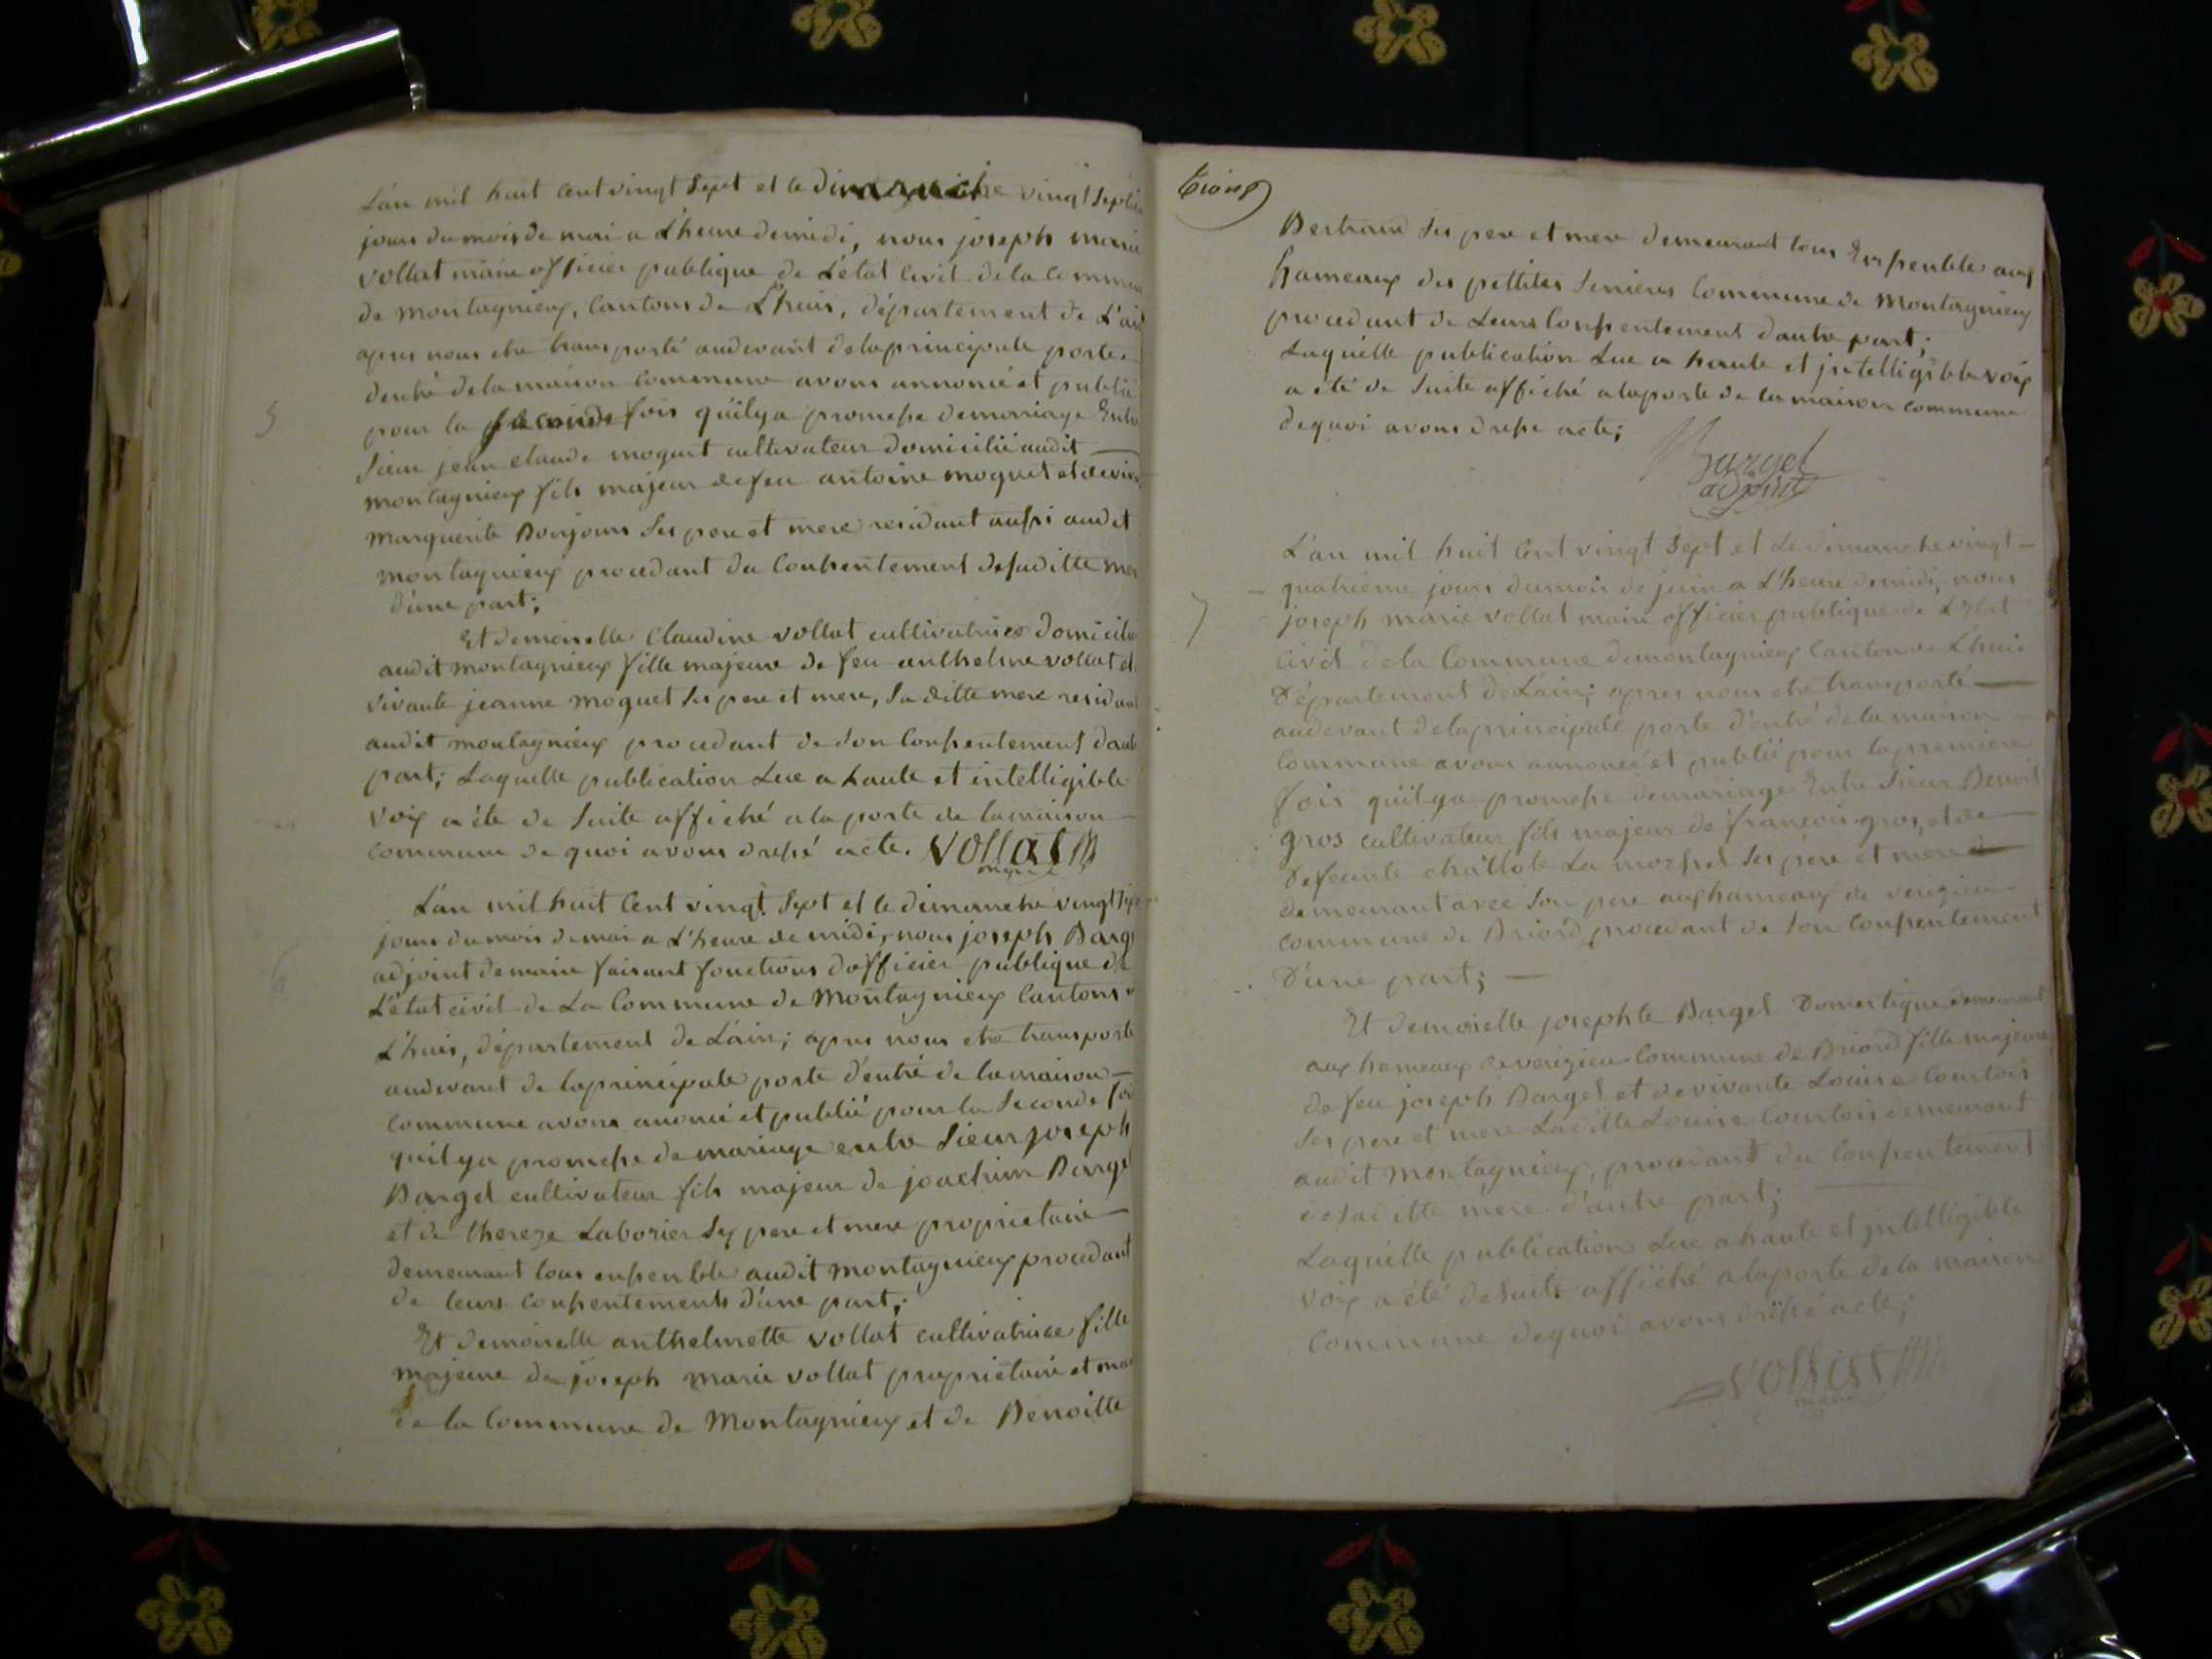 L'an mil huit Cent vingt Sept et le dimanche vingt Septiem
jours du mois de mai a L'heure de midi, nous joseph marie
vollat maire officier publique de L'état Civil de la Commun
de montagnieux, Cantons de L'huis, département de L'ain
apres nous etre transporté audevant de la principale porte
dentré de la maison Commune avons annoncé et publié
5
pour la seconde fois quil y a promesse de mariage Entre
Sieur jean claude moquet cultivateur domicilié audit
montagnieux fils majeur de feu antoine moquet et de viva
marguerite Bonjours Ses pere et mere residant aussi audit
montagnieux procedant du Consentement de saditte mer
d'une part;
Et demoiselle Claudine vollat cultivatrice domicilié
audit montagnieux fille majeure de feu anthelme vollat et
vivante jeanne moquet Ses pere et mere, Sa ditte mere residant
audit montagnieux procedant de Son Consentement daut
part; Laquelle publication Lue a haute et intelligible
voix a été de Suite affiché a la porte de la maison
commune de quoi avons dressé acte. vollat
maire
L'an mil huit Cent vingt Sept et le dimanche vingt Sept
jours du mois de mai a L'heure de midi, nous joseph Barge
6
adjoint de maire faisant fonctions d'officier publique de
L'état civil de La Commune de Montagnieux Cantons
L'huis, département de L'ain; apres nous etre transporté
audevant de la principale porte d'entré de la maison
commune avons anoncé et publié pour la Seconde foi
quil y a promesse de mariage entre Sieur joseph
Bargel cultivateur fils majeur de joachim Bargel
et de thereze Laborier Ses pere et mere proprietaire
demeurant tous ensemble audit montagnieux procedant
de leurs consentements d'une part;
Et demoiselle anthelmette vollat cultivatrice fille
majeure de joseph marie vollat proprietaire et mai
de la Commune de Montagnieux et de Benoitte
trois
Bertrand Ses pere et mere demeurant tous Ensemble aux
hameaux des pettites Serrieres Commune de Montagnieux
procedant de Leurs Consentement dautre part;
Laquelle publication Lue a haute et jntelligible voix
a été de Suite affiché a la porte de la maison commune
de quoi avons dressé acte;
Bargel
adjoint
L'an mil huit Cent vingt Sept et Le dimanche vingt
quatrieme jours du mois de juin a L'heure de midi, nous
7
joseph marie vollat maire officier publique de L'Etat
Civil de la Commune de montagnieux Canton de L'huis
Département de L'ain; apres nous etre transporté
audevant de la principale porte d'entré de la maison
Commune avons annoncé et publié pour la premiere
fois qu'il y a promesse de mariage Entre Sieur Benoit
gros cultivateur fils majeur de francois gros, et de
Defeunte Ses pere et mere
demeurant avec Son pere aux hameaux de verizieu
commune de Briord procedant de Son Consentement
D'une part;
Et demoiselle josephte Bargel Domestique demeurant
aux hameaux de verizieu Commune de Briord fille majeure
de feu joseph Bargel et de vivante Louise Courtois
Ses pere et mere Laditte Louise Courtois demeurant
audit Montagnieux, procedant du Consentement
de saditte mère d'autre part;
Laquelle publication Lue a haute et jntelligible
voix a été de Suite affiché a la porte de la maison
Commune de quoi avons dressé acte;
vollat
maire